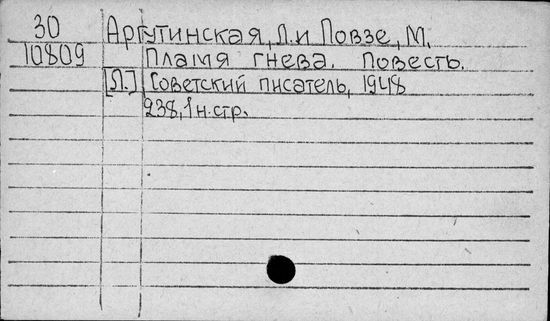 30 Аргутинская, Л. и Повзе, М.
10809 Пламя гнева. Повесть.
[Л.] Советский писатель, 1948
238, 1 н. стр.